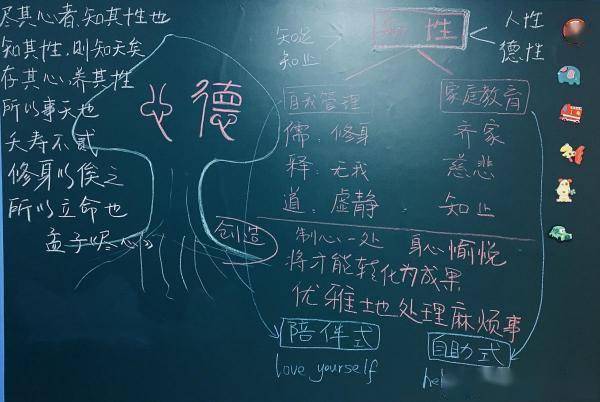 尽其心者,知其性也
知其性,则知天矣
存其心,养其性
所以事天也
夭寿不贰
修身以俟之
所以立命也
孟子《尽心》
心德
知性
知足
知止
人性
德性
自我管理
家庭教育
儒:修身 齐家
释:无我 慈悲
道:虚静 知止
创造
制心一处 身心愉悦
将才能转化为成果
优雅地处理麻烦事
陪伴式
自助式
love yourself